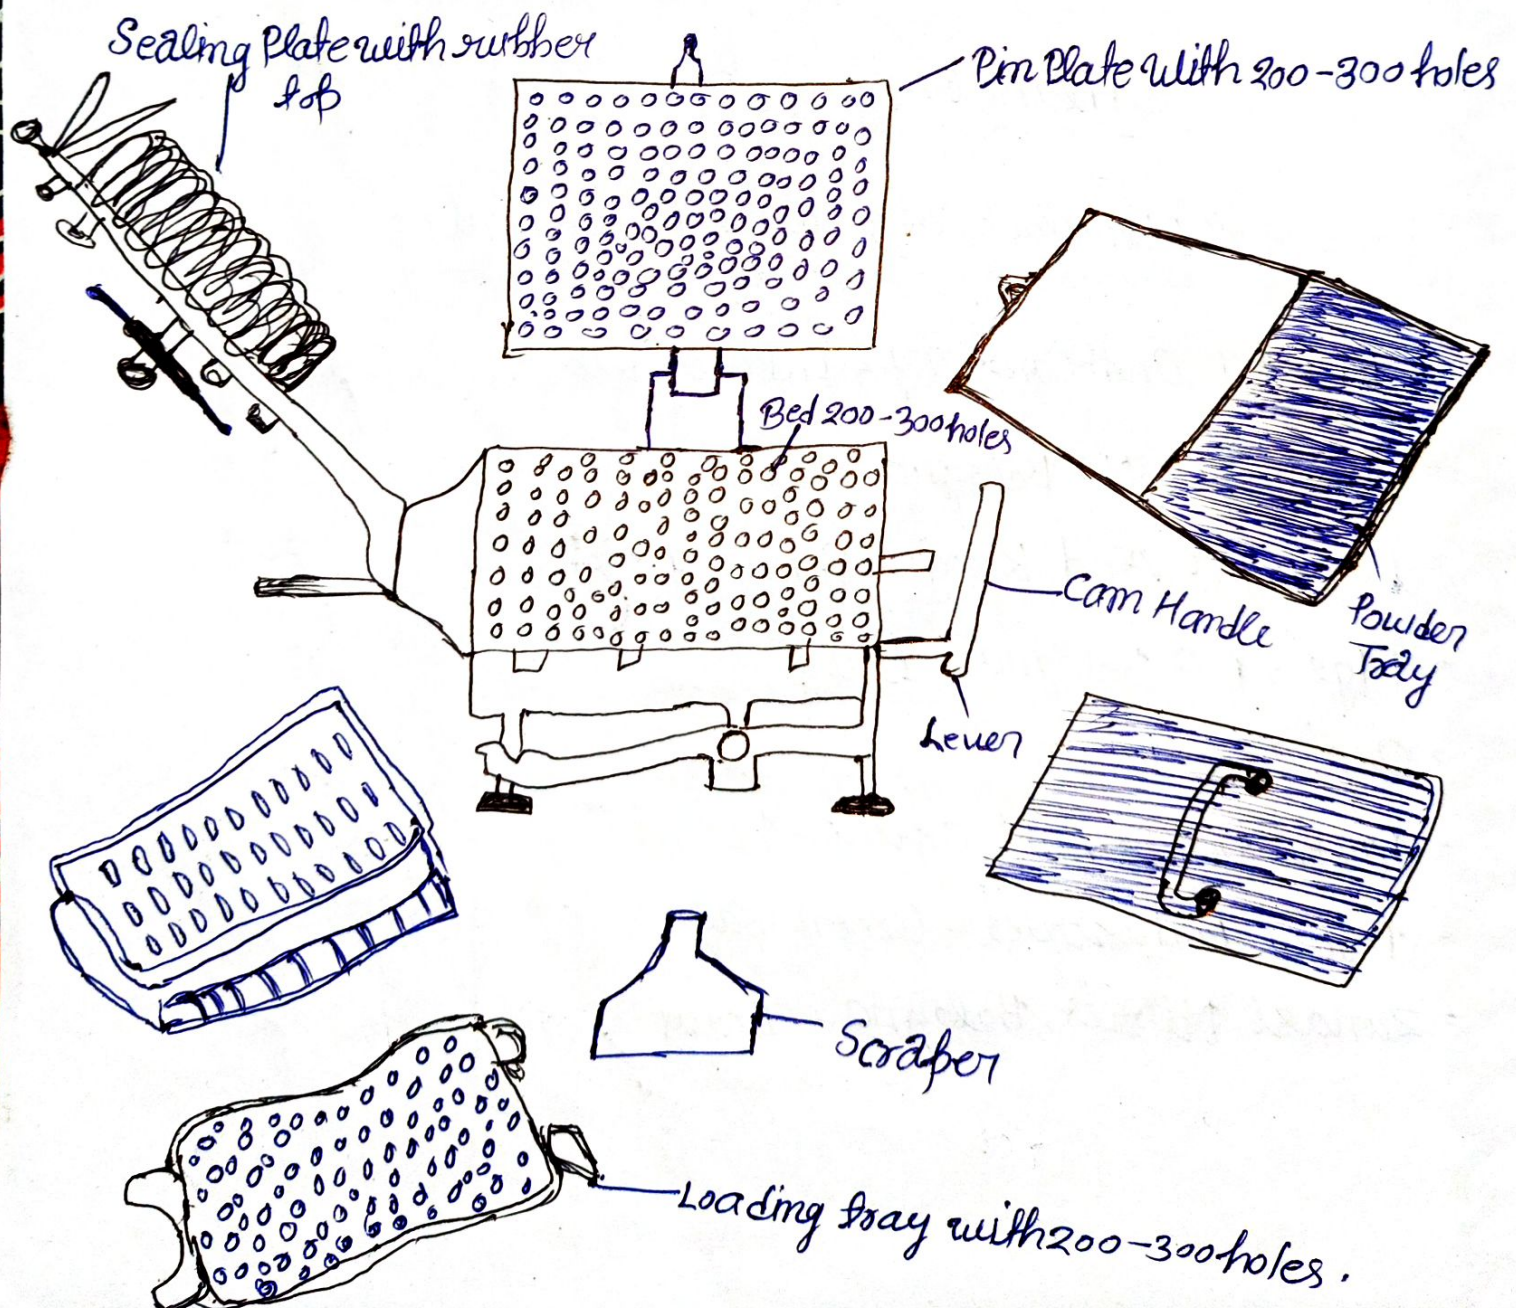 Sealing Plate with rubber
top
Pin Plate with 200-300 holes
Bed 200-300 holes
Cam Handle
Powder
Tray
Lever
Scraper
Loading tray with 200-300 holes.